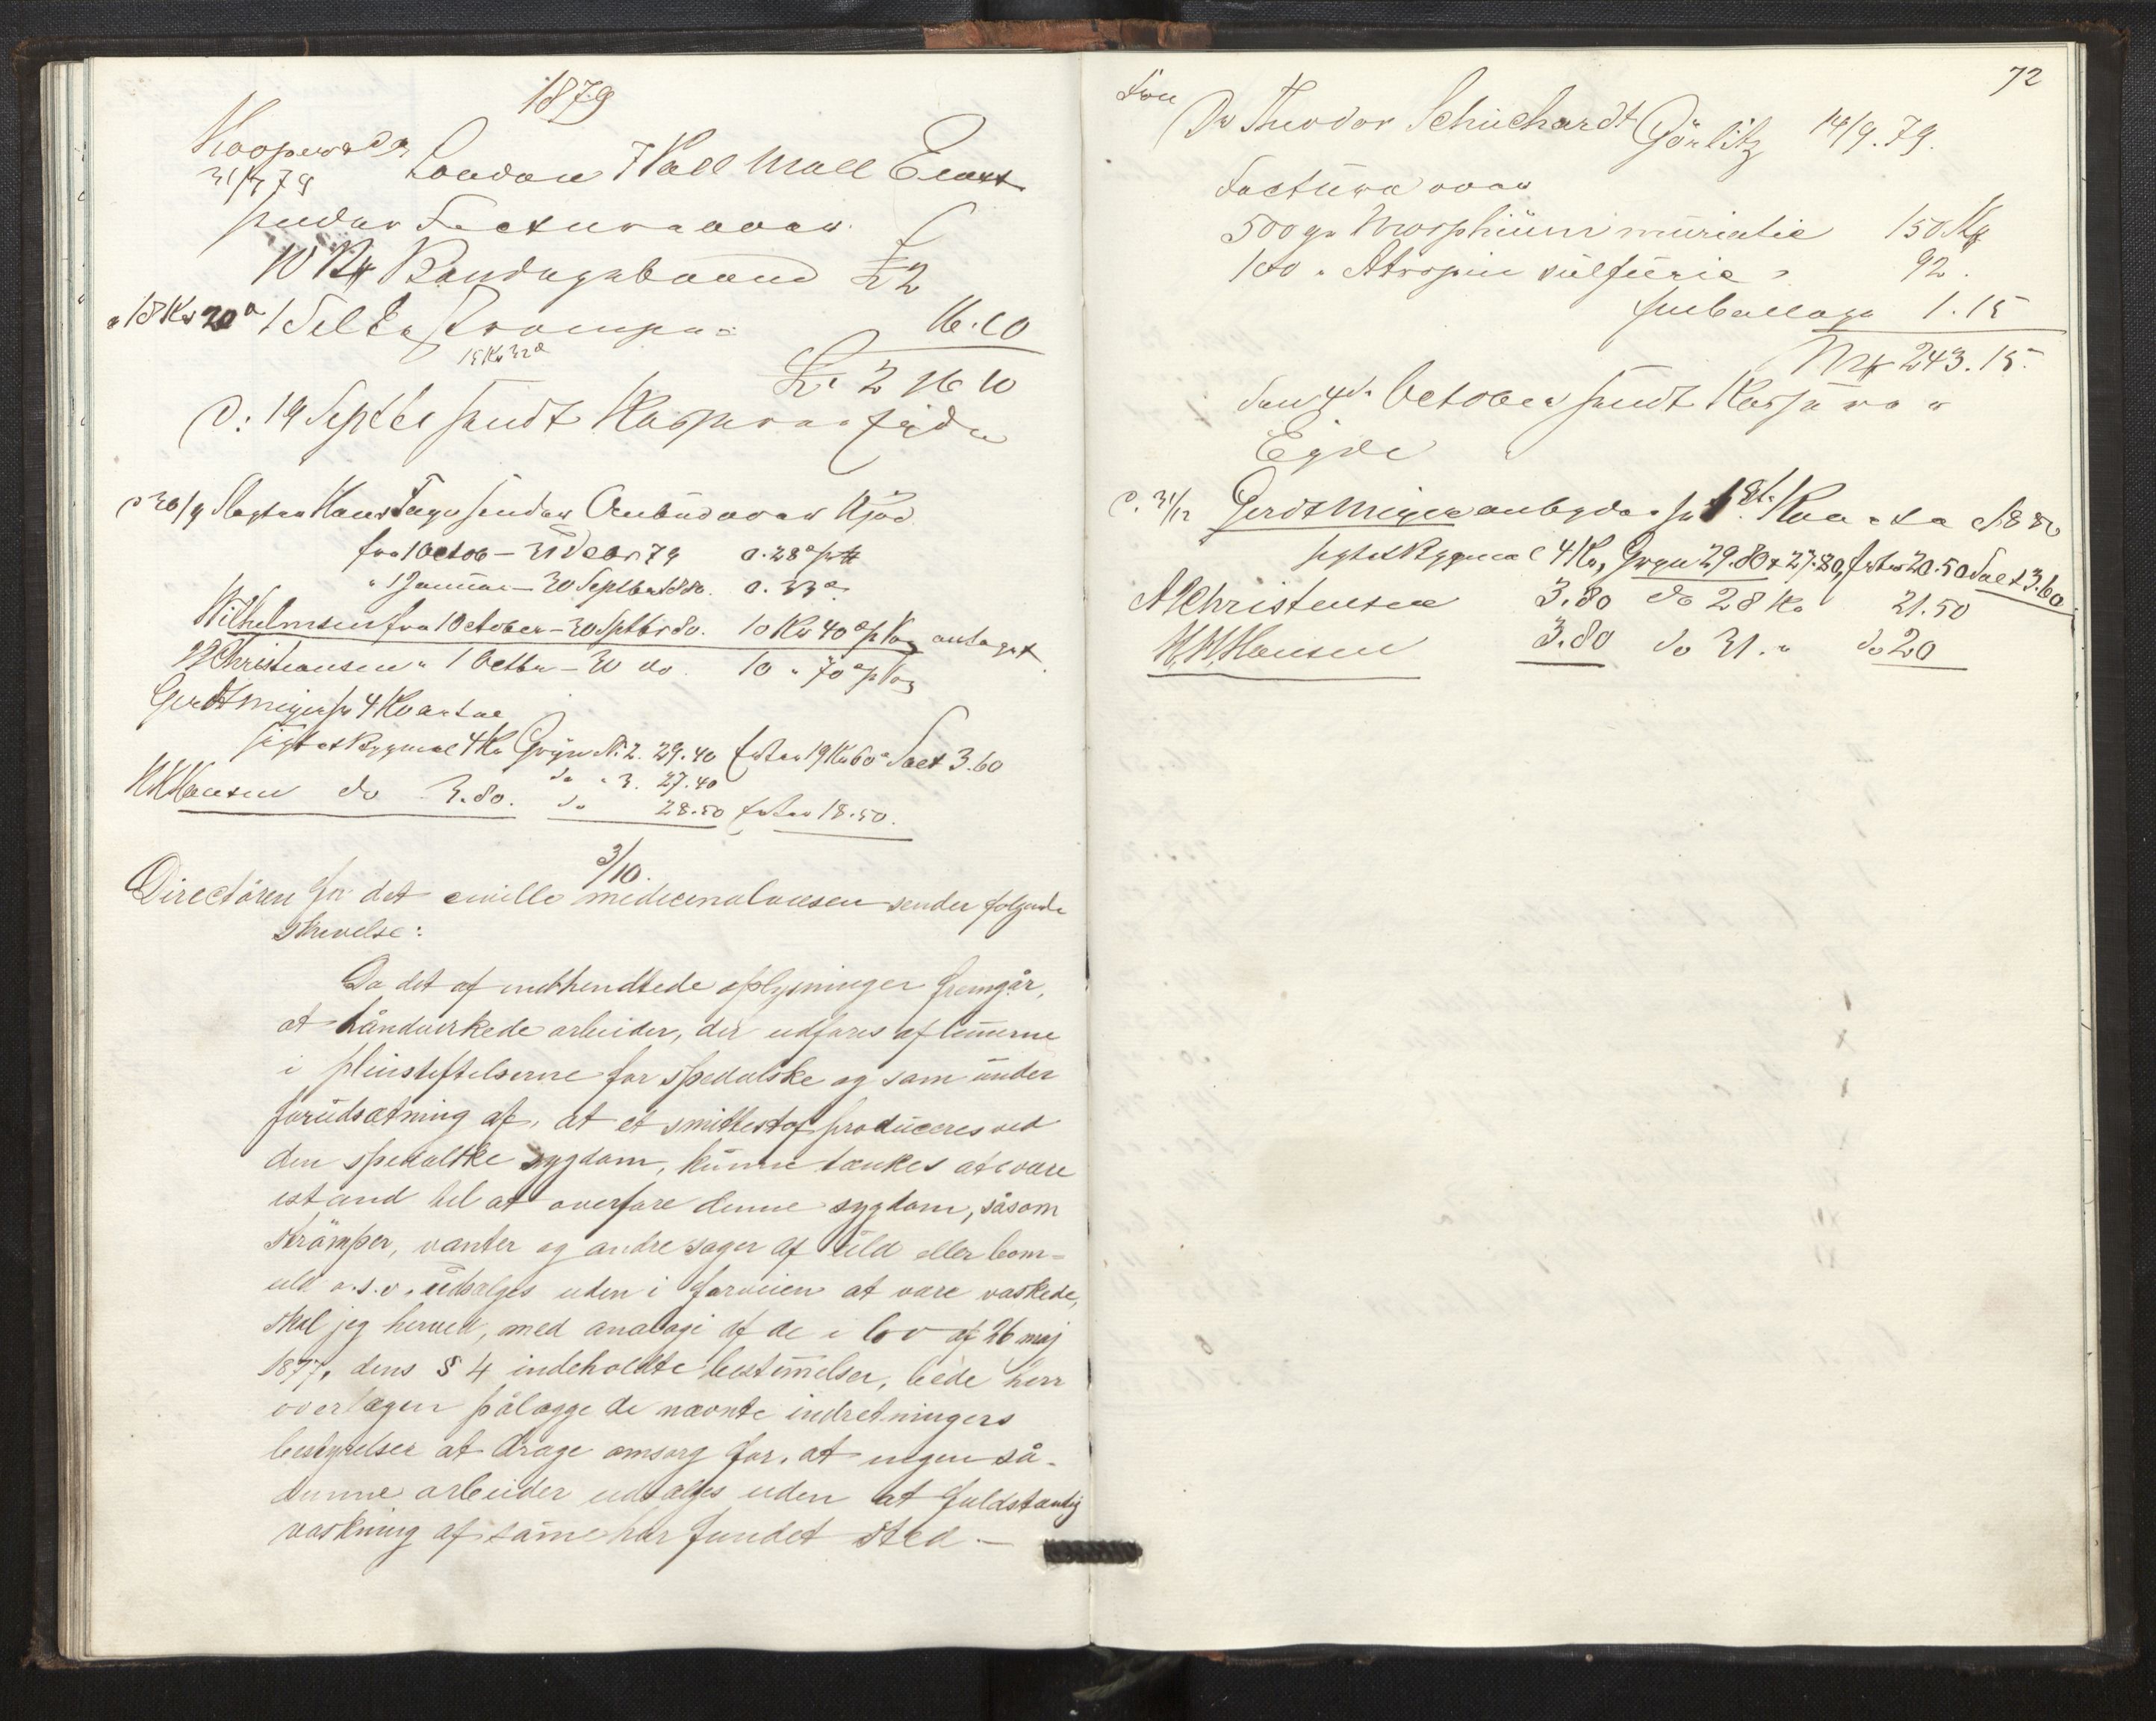 1879
London 7 Pall Mall East
31/7 79
sender Factura over
10 Bandagebaand £ 2
a 18 Kr 20 ø 1 Silkestrømpe 16.10
15 Kr 32 ø
£. 2 16 10
D: 19 Septbr sendt
d 20/9 Slagter Hans Fage sender Anbud over Kjød
fra 1 Octob – 31 Decbr 79 a. 28 ø p
" 1 Januar – 30 Septbr 1880. a. 33 ø
Wilhelmsen fra 1 October – 30 Sptbr 80. 10 Kr 40 ø p Vog antaget
Christiansen " 1 Octbr – 30 do. 10 " 70 ø p Vog
Gerdt Meyer for 4 Kvartal
sigtet Bygmel 4 Kr Gryn No. 2. 29.40 Erter 19 Kr 60 ø Salt 3.60
do " 3. 27.40
H H Hansen do 3.80. do 28.50 Erter 18.50.
3/10.
Directören for det civille medicinalvæsen sender følgende
skrivelse:
Da det af indhendtede oplysninger fremgår,
at håndverkede arbeider, der udføres af lem̄erne
i pleiestiftelserne for spedalske og som under
forudsætning af, at et smittestof produceres ved
den spedalske sygdom, kunne tænkes at være
istand til at overføre denne sygdom, såsom
strömper, vanter og andre sager af uld eller bom=
uld o.s.v. udsælges uden i forveien at være vaskede,
skal jeg herved, med analogi af de i lov af 26 maj
1877, dens § 4 indeholdte bestem̄elser, bede herr
overlægen pålægge de nævnte indretningers
bestyrelser at drage omsorg for, at ingen så-
danne arbeider udsælges uden at fuldstændig
vaskning af sam̄e har fundet sted. —
72
Fra
Dr Theodor Schuchardt Görlitz 14/9. 79.
Factura over
500 gr Morphium muriatic 150 Mk
100 " Atropin sulfuric " 92.
Emballage 1.15
Mk 243.15.
den 4de October sendt Kasserer
Eyde
d. 31/12 Gerdt Meyer anbyder for 1st. Kvartal 1880
sigtet Bygmel 4 Kr, Gryn 29.80 & 27.80, Erter 20.50 Salt 3.60
A Christensen 3.80 do 28 Kr 21.50
H. H. Hansen 3.80 do 31. " do 20